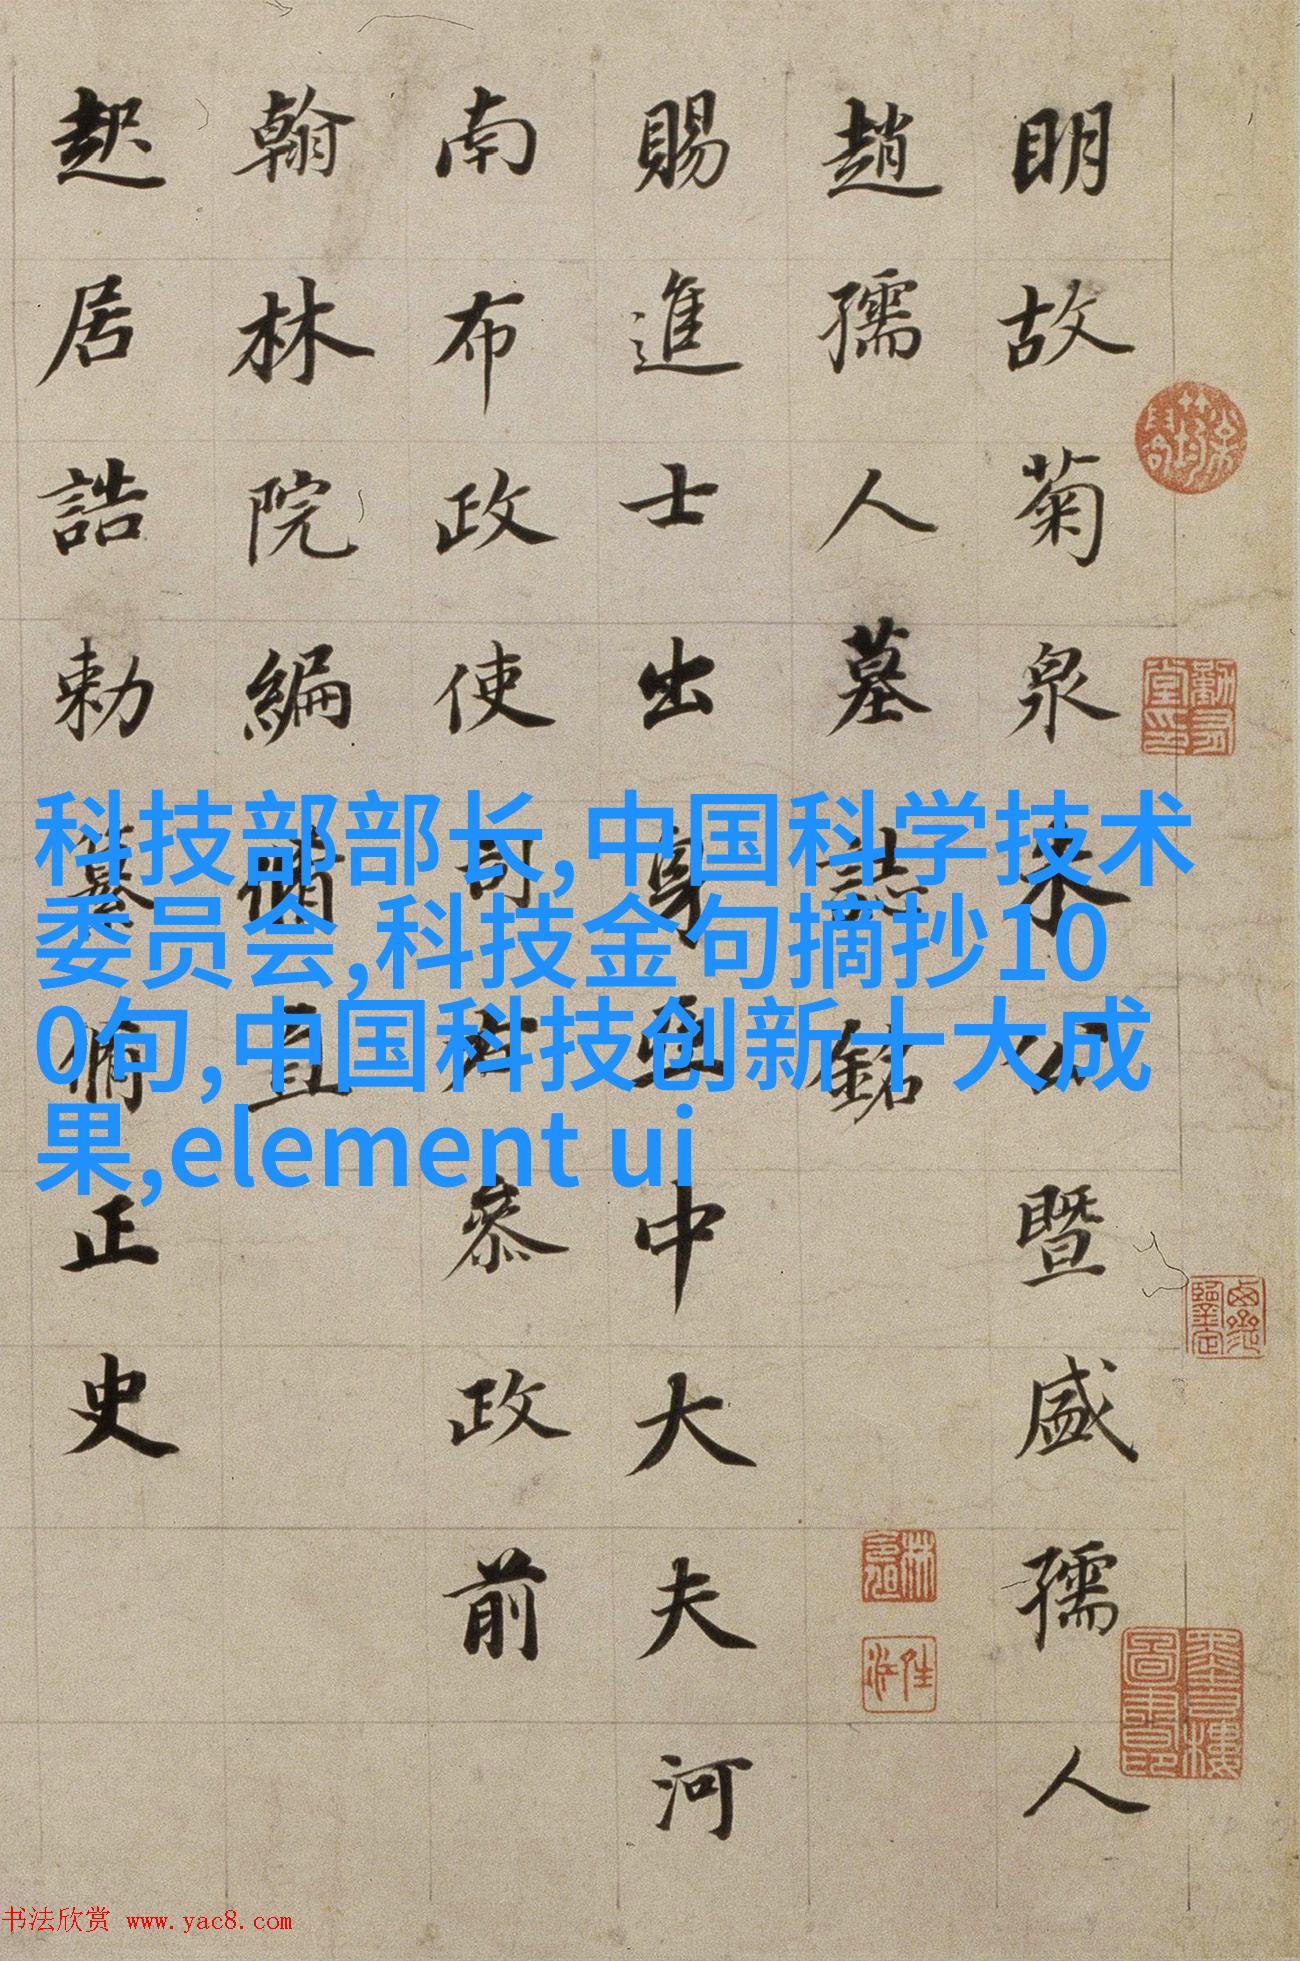 明故菊泉朱公暨盛孺人
趙孺人墓誌銘
賜進士出身亞中大夫河
南布政使司右叅政前
翰林院編脩直
起居誥勅纂脩正史
科技部部长,中国科学技术
委员会,科技金句摘抄10
0句,中国科技创新十大成
果,element ui
书法欣赏 www.yac8.com